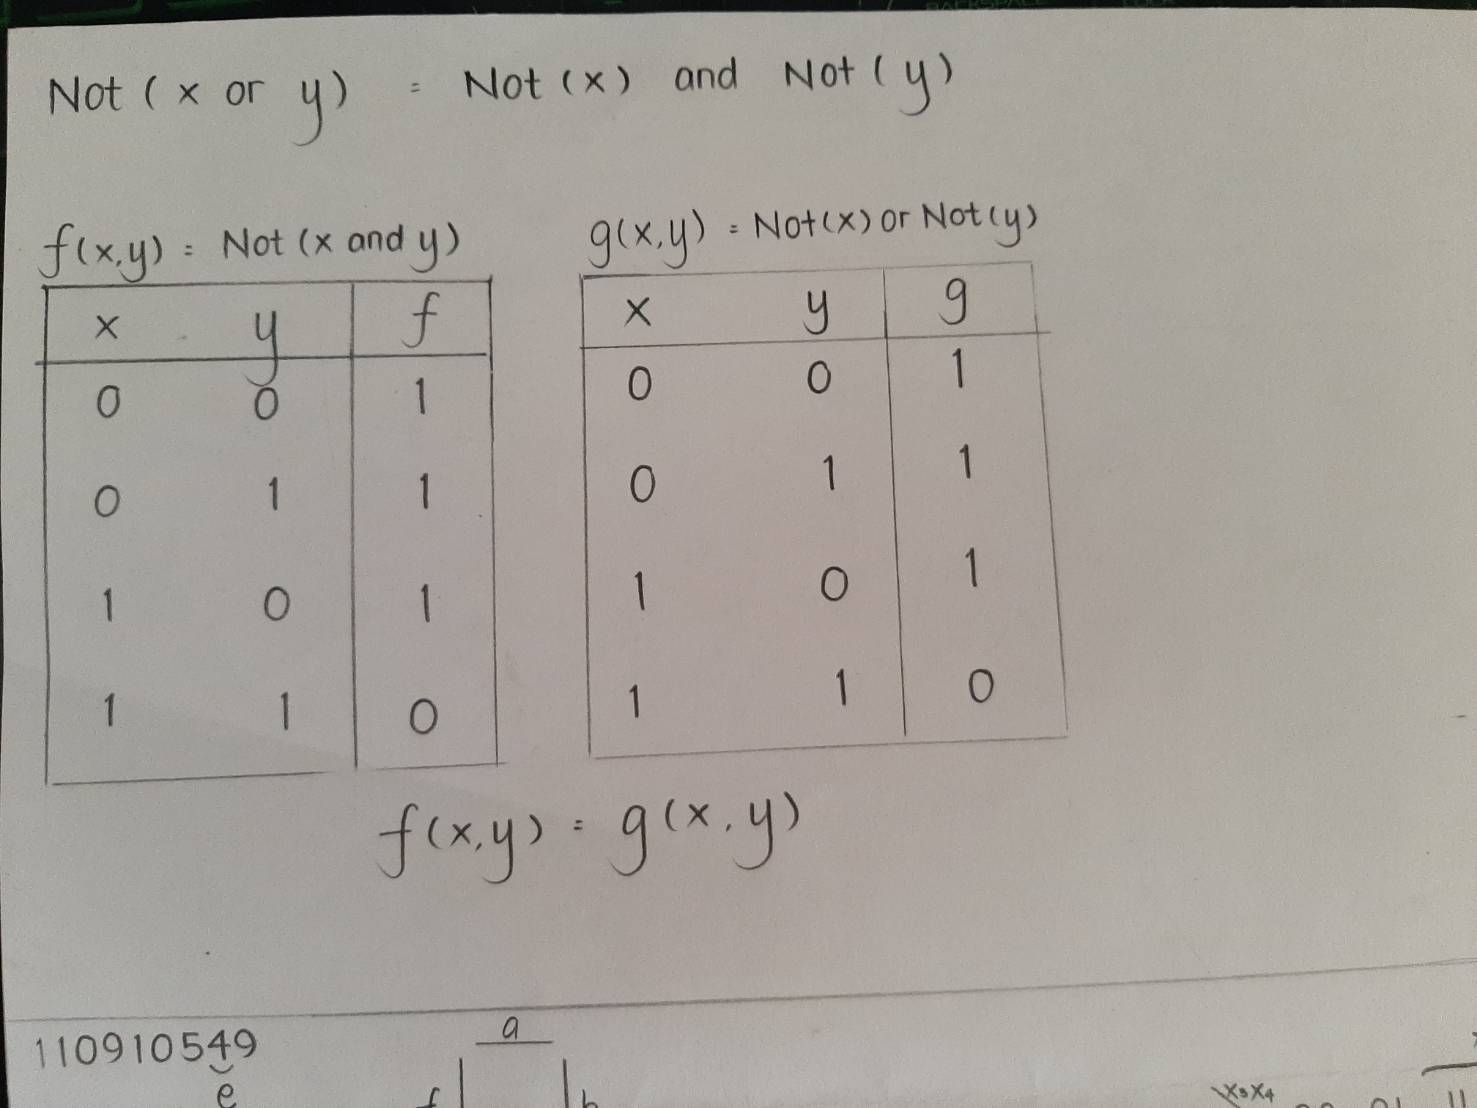 Not (x or y) = Not (x) and Not (y)
f(x,y) = Not (x and y)
x y f
0 0 1
0 1 1
1 0 1
1 1 0
g(x,y) = Not(x) or Not(y)
x y g
0 0 1
0 1 1
1 0 1
1 1 0
f(x,y) = g(x,y)
110910549
e
a
f b
x3x4